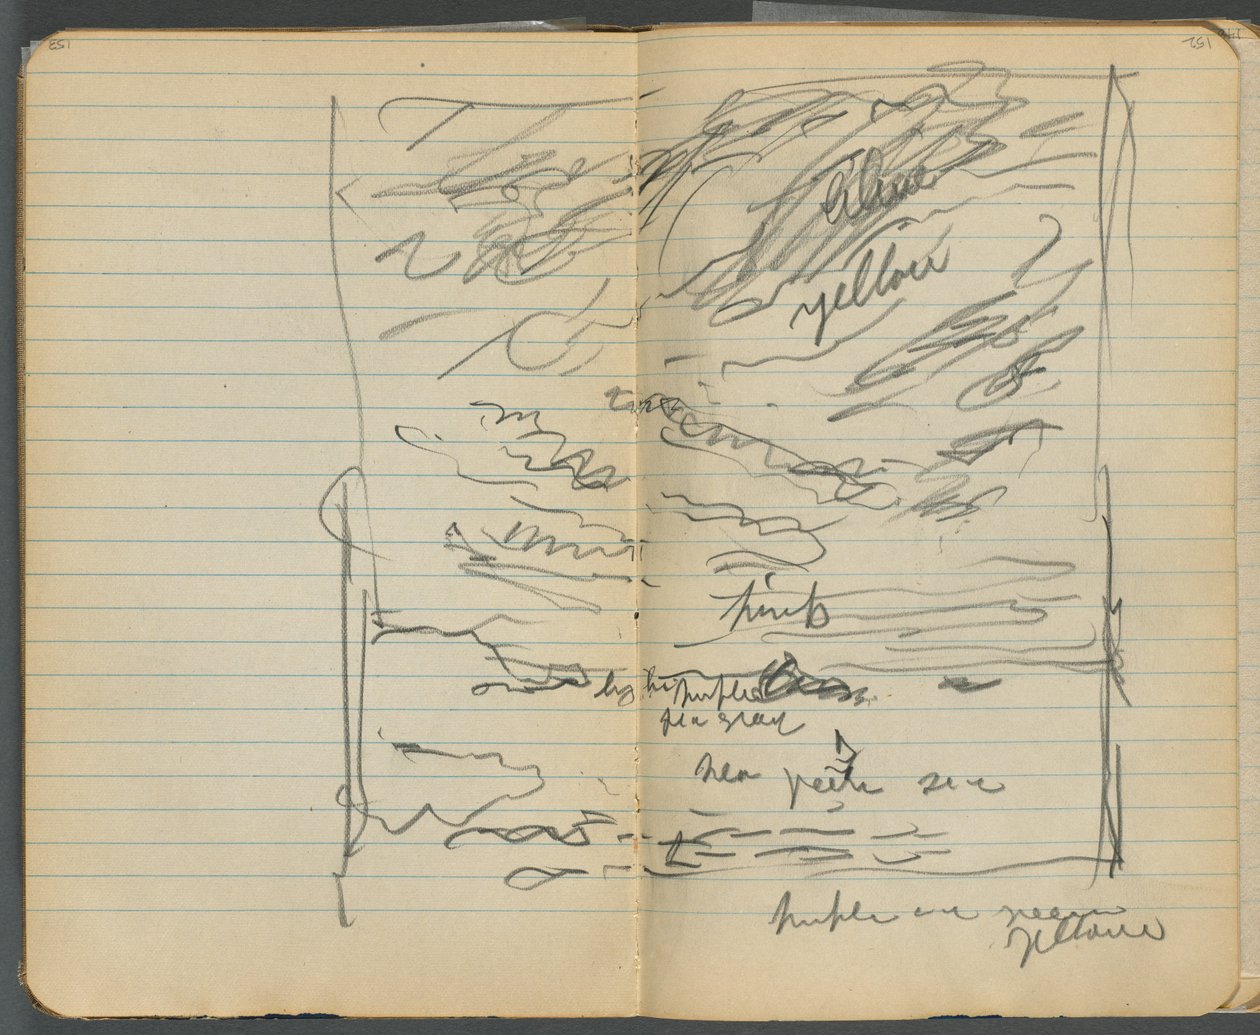 153
152
blue
yellow
pink
light purple
gray
green sea
purple and green
yellow